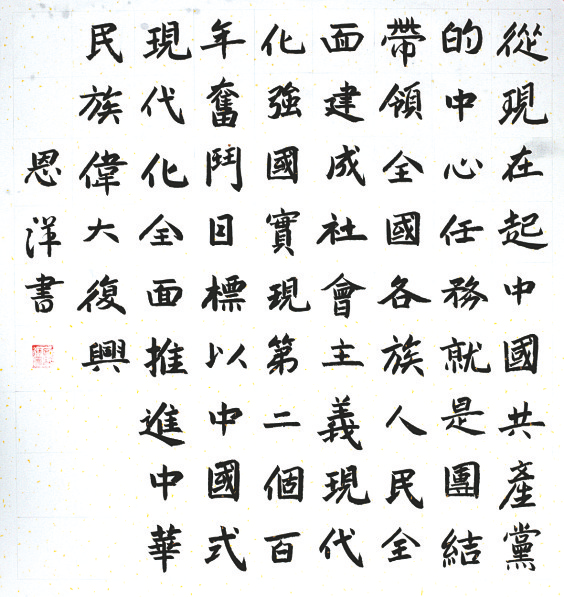 從現在起中國共產黨
的中心任務就是團結
帶領全國各族人民全
面建成社會主義現代
化強國實現第二個百
年奮鬥目標以中國式
現代化全面推進中華
民族偉大復興
恩洋書